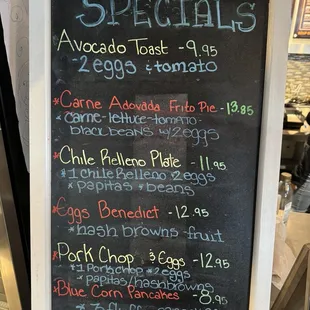 SPECIALS
Avocado Toast - 9.95
-2eggs & tomato
*Carne Adovada Frito Pie - 13.85
*carne-lettuce-tomato-
blackbeans w/2eggs
*Chile Relleno Plate - 11.95
*1 chile Relleno 2eggs
*papitas *beans
*Eggs Benedict - 12.95
*hash browns - fruit
*Pork Chop & Eggs - 12.95
*1 Pork chop *2 eggs
*papitas/hashbrowns
*Blue Corn Pancakes - 8.95